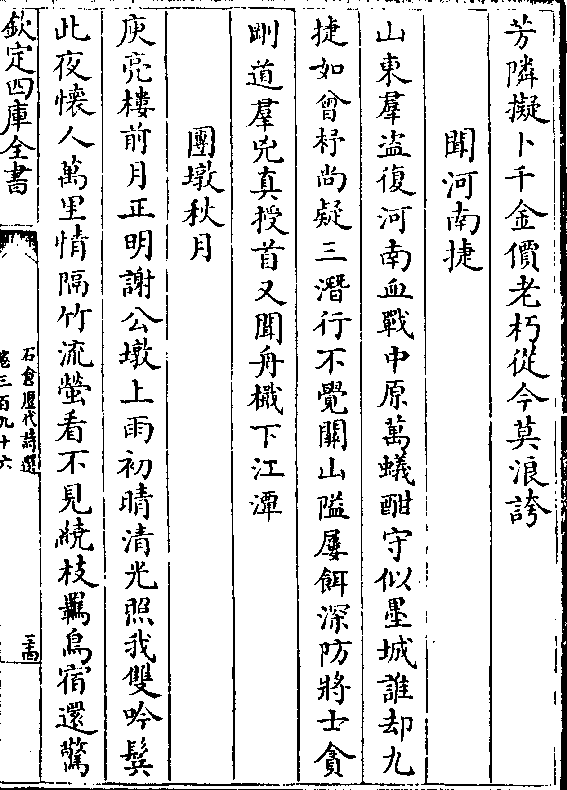 芳隣擬卜千金價老朽從今莫浪誇
聞河南捷
山東羣盗復河南血戰中原萬蟻酣守似墨城誰却九
捷如曾杼尚疑三潛行不覺關山隘屢餌深防將士貪
剛道羣兇真授首又聞舟檝下江潭
團墩秋月
庾亮樓前月正明謝公墩上雨初晴清光照我雙吟鬂
此夜懷人萬里情隔竹流螢看不見繞枝羈鳥宿還驚
欽定四庫全書
石倉歴代詩選
卷三百九十六